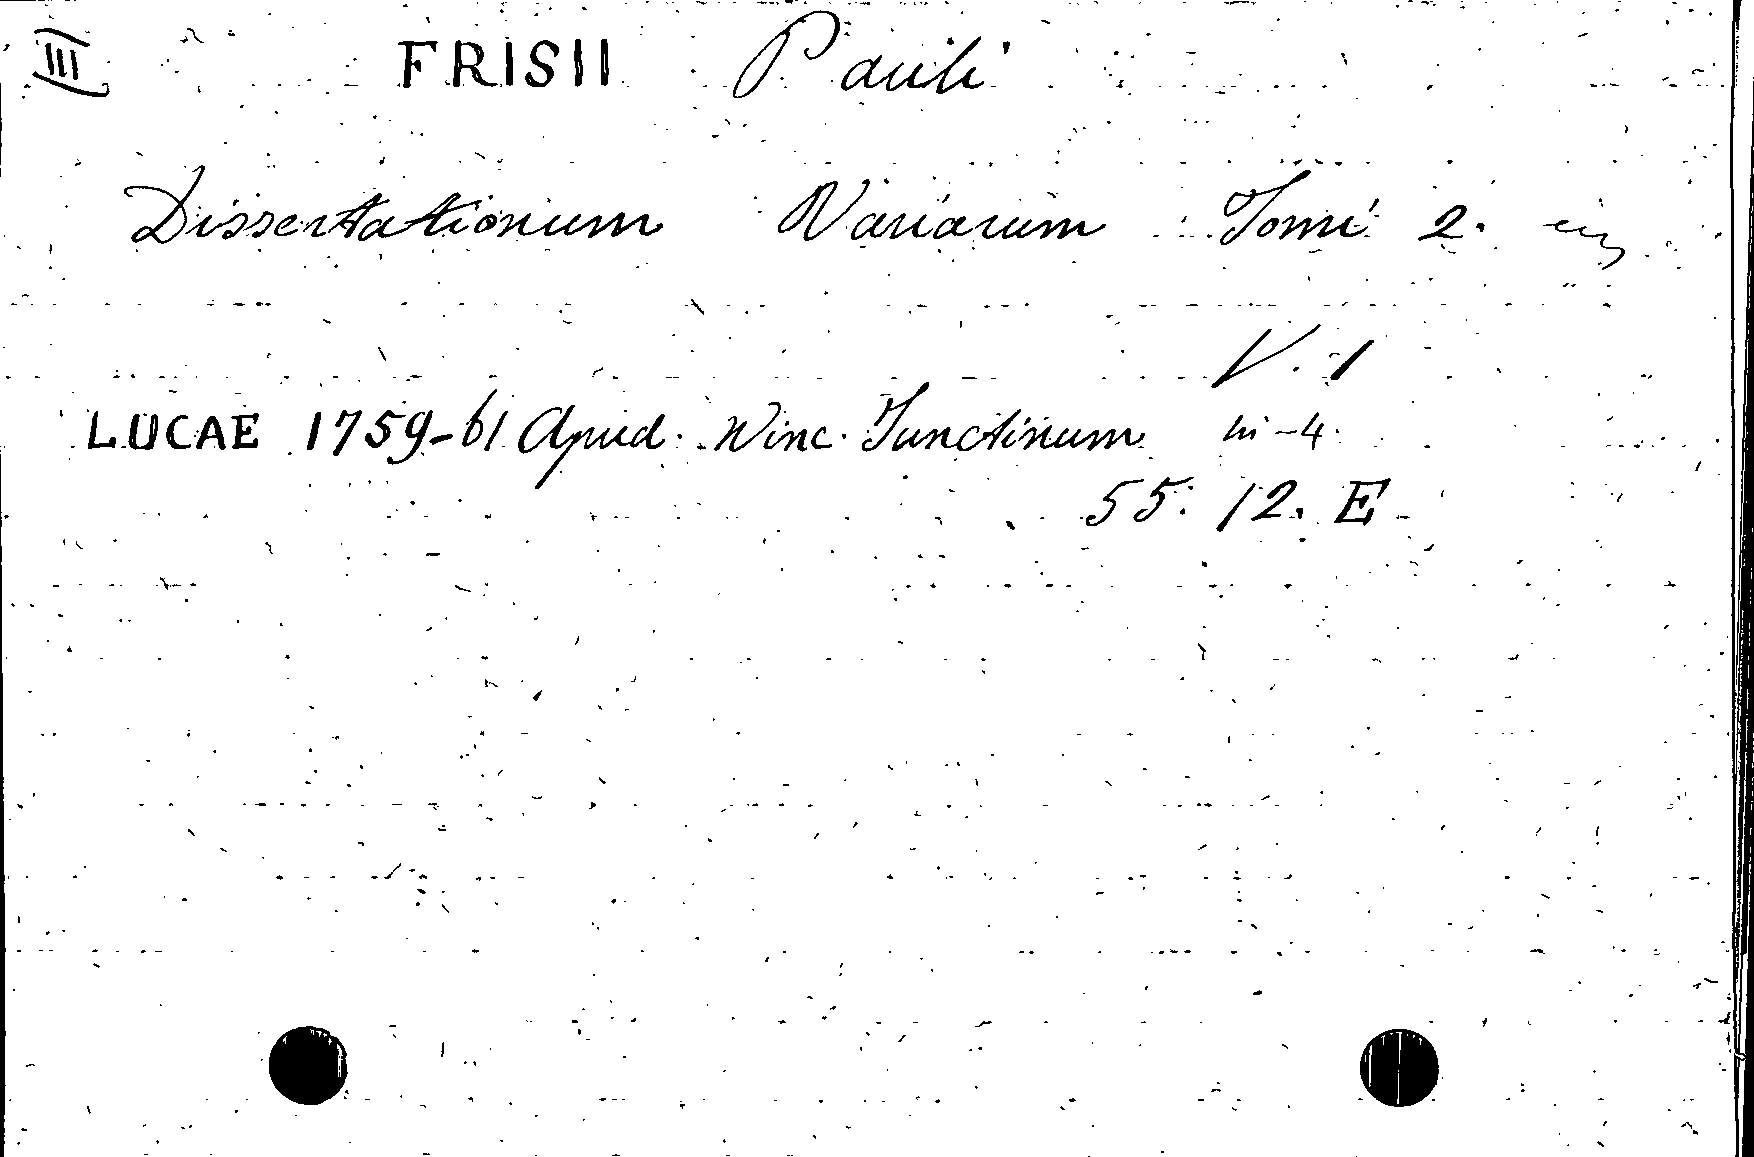 III FRISII Pauli
Dissertationum Variarum Tomi 2. in
V. 1
LUCAE 1759-61 Apud. Vinc. Junctinum in-4.
55. 12. E